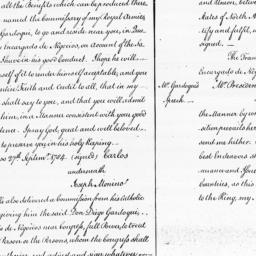 all the Benefits which can be produced there
named the commissary of my Royal armies,
Gardoqui, to go and reside near you, in
Encargado de Négocios, on account of the
I have in his good conduct. I hope he will
self of it to render himself acceptable; and you
entire Faith and Credit to all, that in my
shall say to you, and that you will admit
him, in a Manner consistent with your good
dence. I pray God, great and well beloved
to preserve you in his holy Keeping.
27th Septemr. 1784. (signed) Carlos
underneath
Joseph Monino
He also delivered a Commission from his Catholic
giving him the said Don Diego Gardoqui,
de Négocios near Congress, full Power, to treat
Person or the Persons, whom the Congress shall
adjust and sign whatever
and Union, may
States of North A
tify and fulfil, w
signed.
The Tran
Encargado de Négo
Mr. Gardoqui's
Speech.
Mr. Presiden
the Manner by w
send me hither.
best Endeavors
ounties, as this
to the King, my